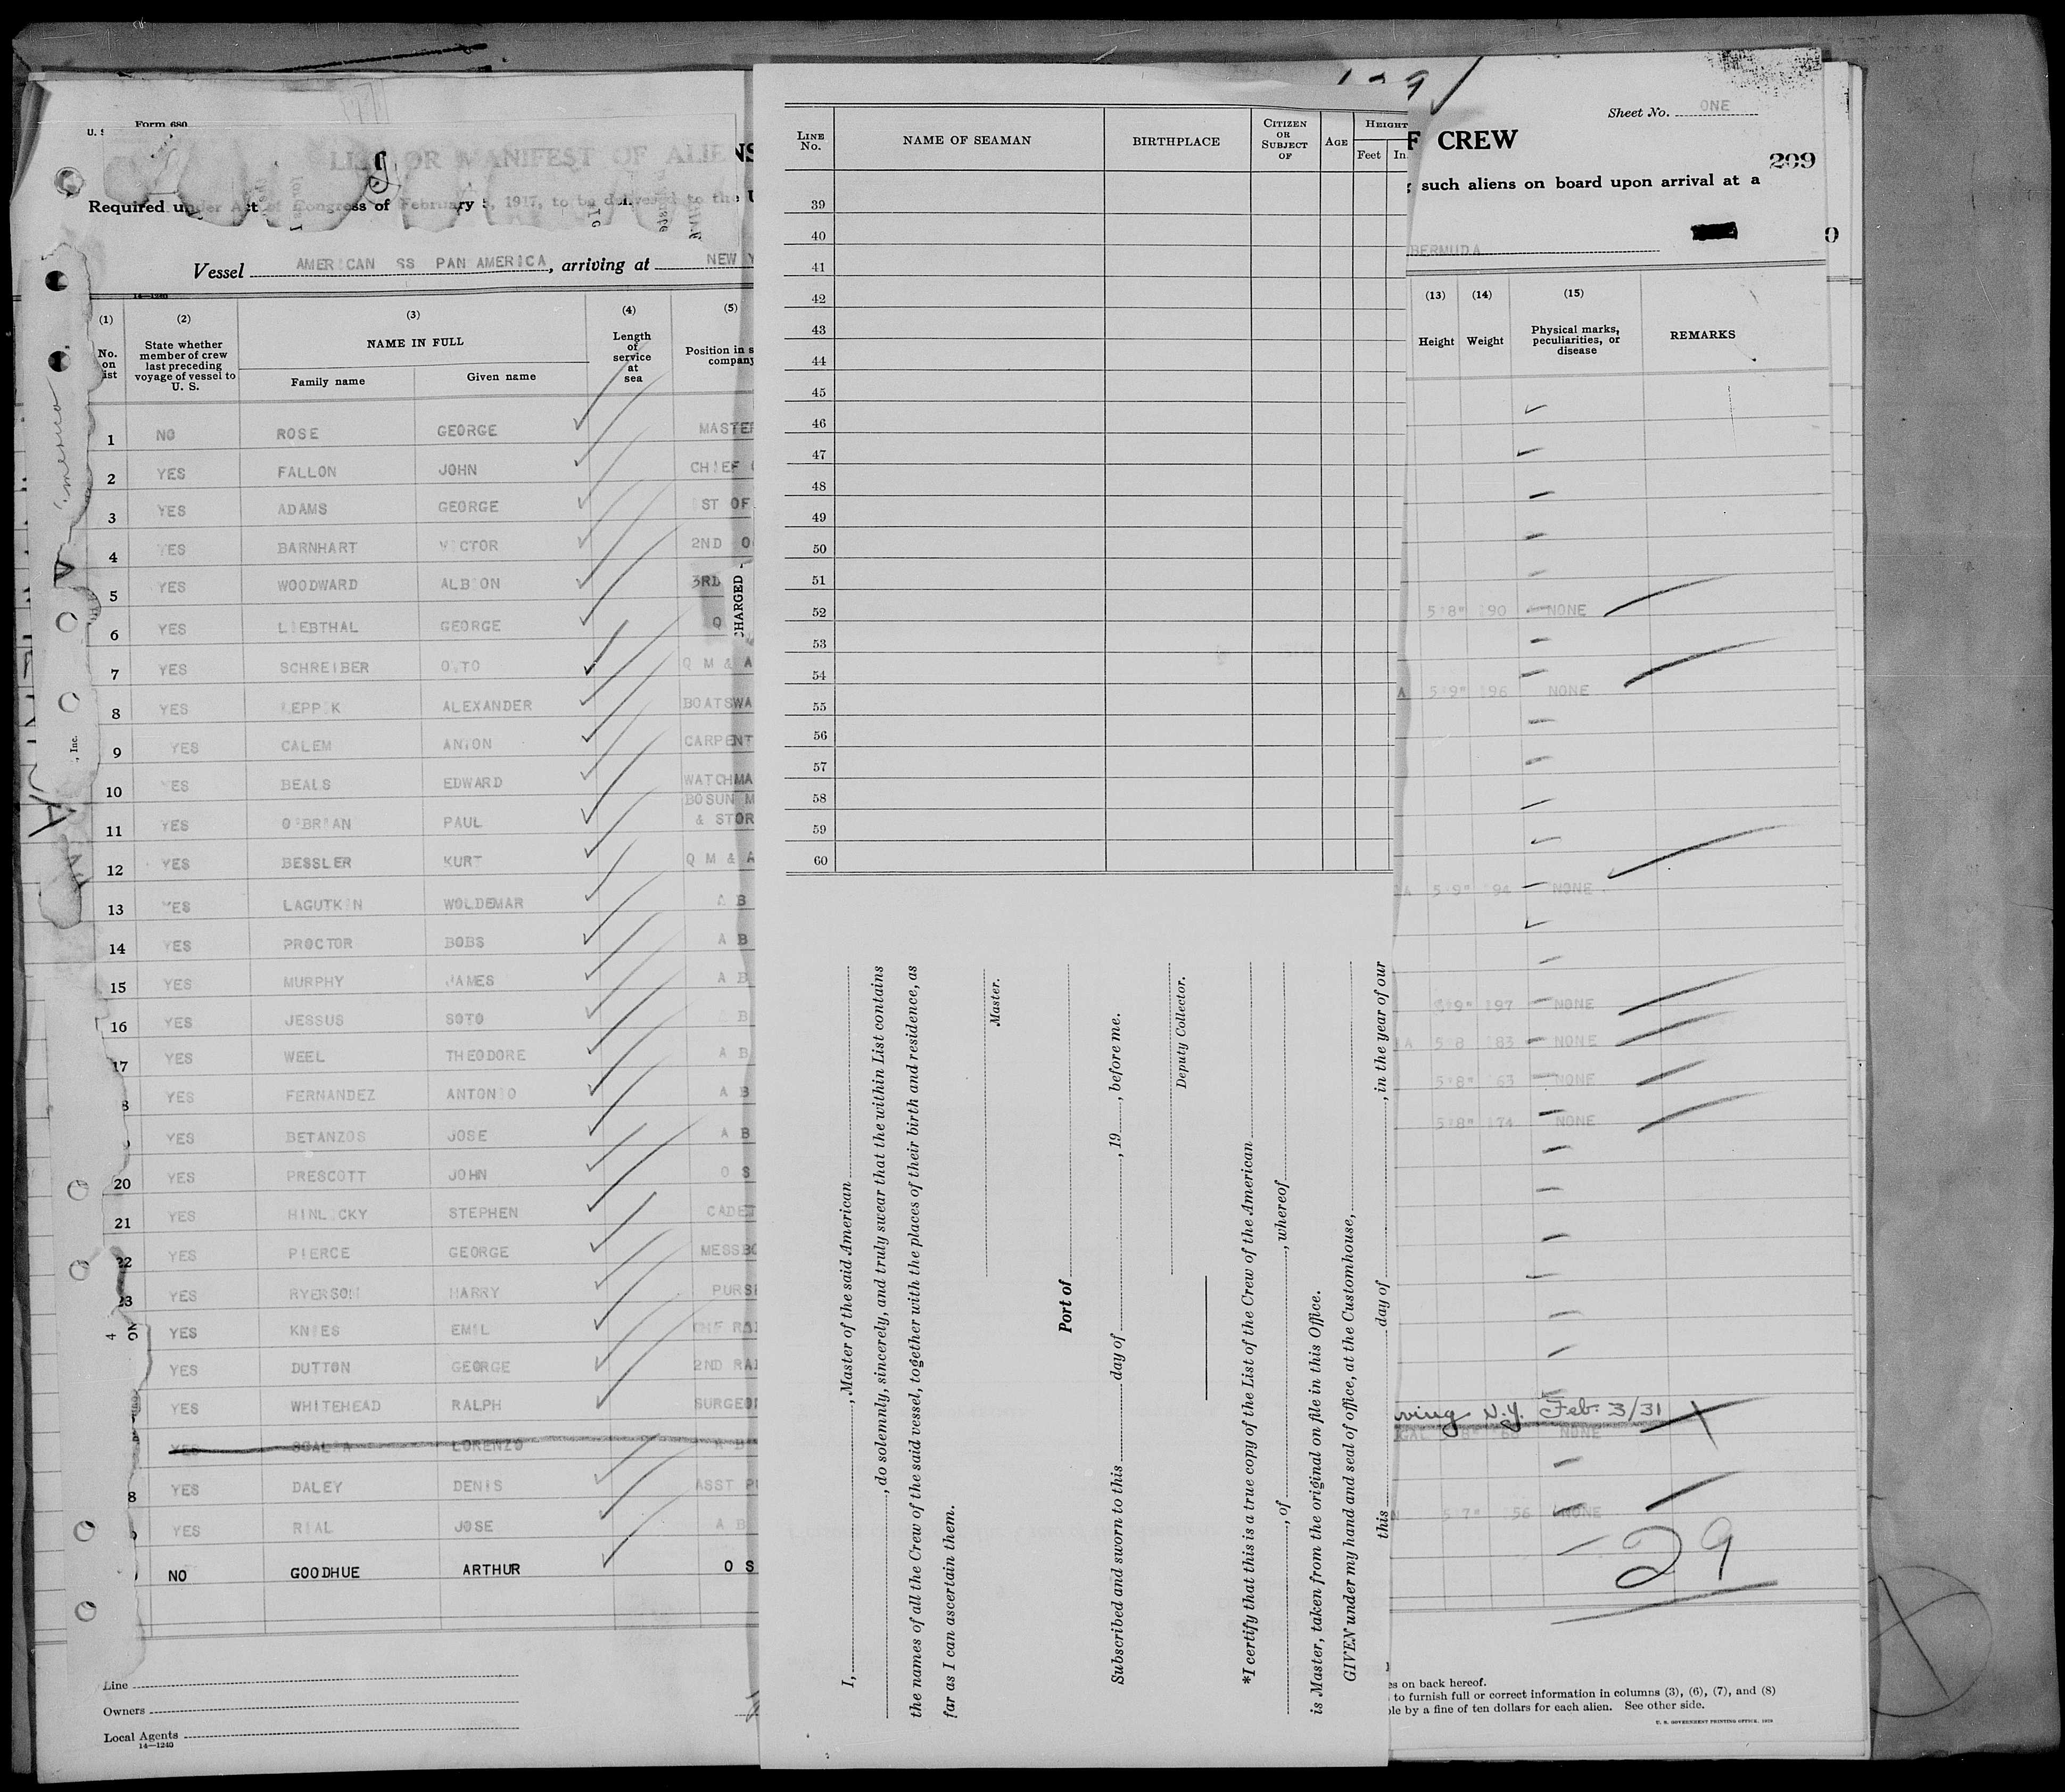 Form 680
U. S
LIST OR MANIFEST OF ALIENS
Required under Act of Congress of February 5, 1917, to be delivered to the U
Vessel AMERICAN SS PAN AMERICA, arriving at NEW Y
14—1240
(1) (2) (3) (4) (5)
No. on list
State whether member of crew last preceding voyage of vessel to U. S.
NAME IN FULL
Family name Given name
Length of service at sea
Position in s company
1 NO ROSE GEORGE MASTER
2 YES FALLON JOHN CHIEF
3 YES ADAMS GEORGE 1ST OF
4 YES BARNHART VICTOR 2ND O
5 YES WOODWARD ALBION 3RD
6 YES LIEBTHAL GEORGE Q
7 YES SCHREIBER OTTO Q M & A
8 YES LEPPIK ALEXANDER BOATSWA
9 YES CALEM ANTON CARPENT
10 YES BEALS EDWARD WATCHMA
11 YES O'BRIAN PAUL BOSUN M & STOR
12 YES BESSLER KURT Q M & A
13 YES LAGUTKIN WOLDEMAR A B
14 YES PROCTOR BOBS A B
15 YES MURPHY JAMES A B
16 YES JESSUS SOTO B
17 YES WEEL THEODORE A B
8 YES FERNANDEZ ANTONIO A B
YES BETANZOS JOSE A B
20 YES PRESCOTT JOHN O S
21 YES HINLICKY STEPHEN CADET
22 YES PIERCE GEORGE MESSBO
23 YES RYERSON HARRY PURSE
4 YES KNIES EMIL CHF RAI
YES DUTTON GEORGE 2ND RAI
YES WHITEHEAD RALPH SURGEON
YES LORENZO A B
8 YES DALEY DENIS ASST PU
YES RIAL JOSE A B
NO GOODHUE ARTHUR O S
Line
Owners
Local Agents
14—1240
, Inc.
CHARGED
LINE No. NAME OF SEAMAN BIRTHPLACE CITIZEN OR SUBJECT OF AGE HEIGHT
Feet In.
39
40
41
42
43
44
45
46
47
48
49
50
51
52
53
54
55
56
57
58
59
60
I, , Master of the said American
, do solemnly, sincerely, and truly swear that the within List contains
the names of all the Crew of the said vessel, together with the places of their birth and residence, as
far as I can ascertain them.
Master.
Port of
Subscribed and sworn to this day of , 19 , before me.
Deputy Collector.
*I certify that this is a true copy of the List of the Crew of the American
, of , whereof
is Master, taken from the original on file in this Office.
GIVEN under my hand and seal of office, at the Customhouse,
this day of , in the year of our
Sheet No. ONE
F CREW
209
such aliens on board upon arrival at a
BERMUDA
0
(13) (14) (15)
Height Weight Physical marks, peculiarities, or disease REMARKS
5'8" 190 NONE
A 5'9" 196 NONE
A 5'9" 194 NONE
5'9" 197 NONE
A 5'8 183 NONE
5'8" 163 NONE
5'8" 174 NONE
ving N.Y. Feb. 3/31
GAL NONE
N 5'7" 156 NONE
29
es on back hereof.
to furnish full or correct information in columns (3), (6), (7), and (8)
ble by a fine of ten dollars for each alien. See other side.
U. S. GOVERNMENT PRINTING OFFICE